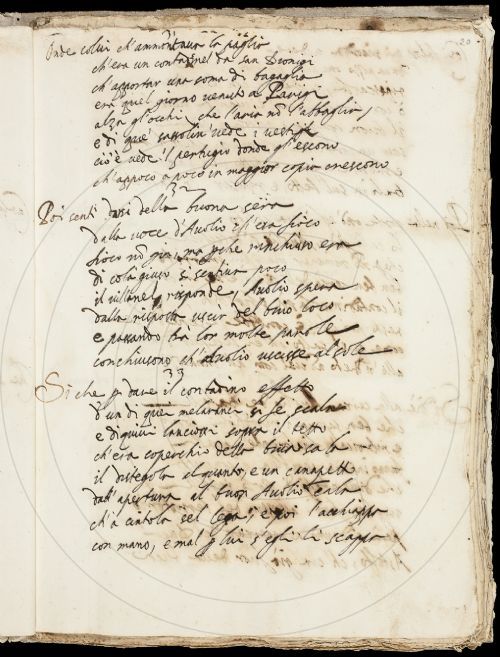 20
Onde colui ch'ammontaua la paglia
ch'era un contadinel da san Dionigi
ch'apportar una soma di bagaglia
era quel giorno venuto a Parigi
alza gl'occhi, che l'aria nõ l'abbaglia,
e di que' sassolin vede i vestigi
cioè vede il pertugio donde gl'escono
ch'appoco a poco in maggior copia crescono
32
Poi senti darsi della buona sera
dalla voce d'Auolio ch'era fioco
fioco nõ già, ma perche rinchiuso era
di colà giuso si sentiua poco
il uillanel risponde, Auolio spera
dalla risposta uscir del buio loco
e passando tra lor molte parole
conchiusono ch'Auolio uscisse al sole
33
Si che per dare il contadino effetto
d'un di quei melaranci si fe scala
e di quiui lanciossi sopra il tetto
ch'era coperchio della
il distegola alquanto, e un canapetto
dall'apertura al buon Auolio cala
ch'a ciò se'l lega, e poi l'acchiappa
con mano, e mal per lui s'egli li scappa